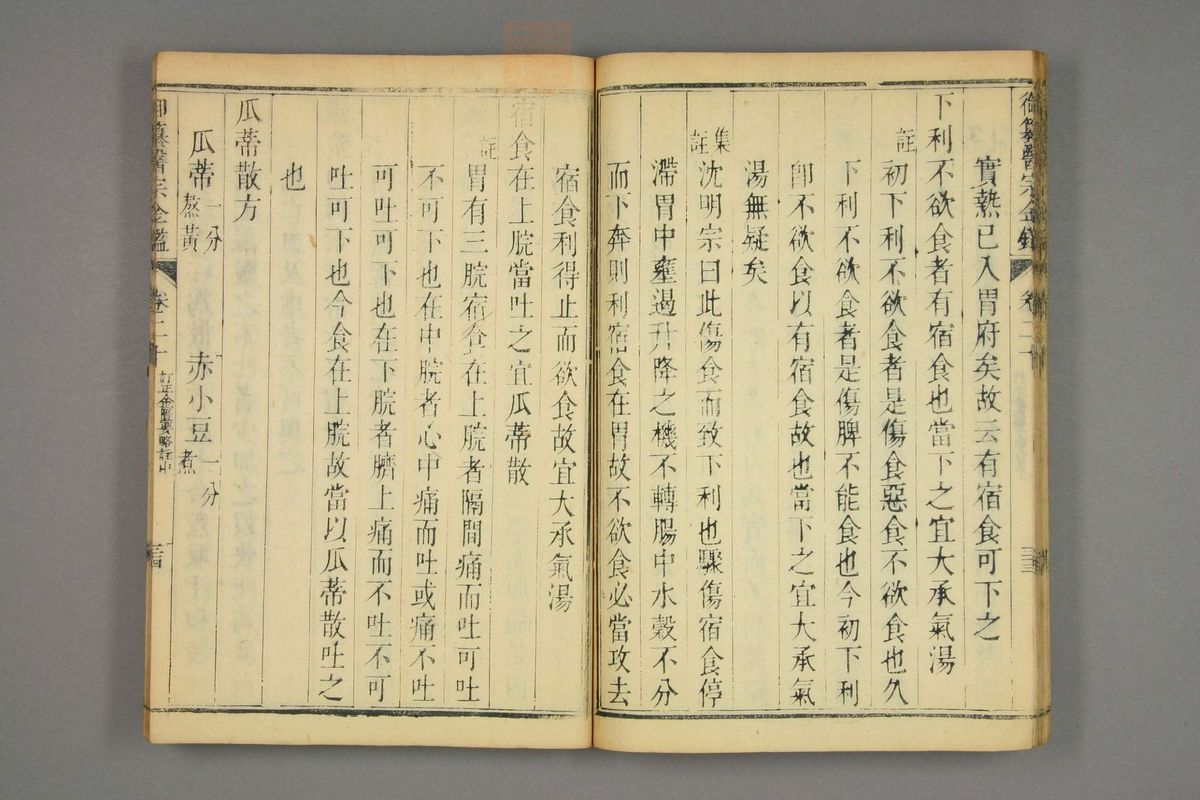 御纂醫宗金鑑 卷二十 三三
實熱已入胃府矣故云有宿食可下之
下利不欲食者有宿食也當下之宜大承氣湯
註初下利不欲食者是傷食惡食不欲食也久
下利不欲食者是傷脾不能食也今初下利
卽不欲食以有宿食故也當下之宜大承氣
湯無疑矣
集註沈明宗曰此傷食而致下利也驟傷宿食停
滯胃中壅遏升降之機不轉腸中水穀不分
而下奔則利宿食在胃故不欲食必當攻去
宿食利得止而欲食故宜大承氣湯
宿食在上脘當吐之宜瓜蒂散
註胃有三脘宿食在上脘者隔間痛而吐可吐
不可下也在中脘者心中痛而吐或痛不吐
可吐可下也在下脘者臍上痛而不吐不可
吐可下也今食在上脘故當以瓜蒂散吐之
也
瓜蒂散方
瓜蒂一分熬黃 赤小豆一分煮
御纂醫宗金鑑 卷二十 訂正金匱要略註中 三四